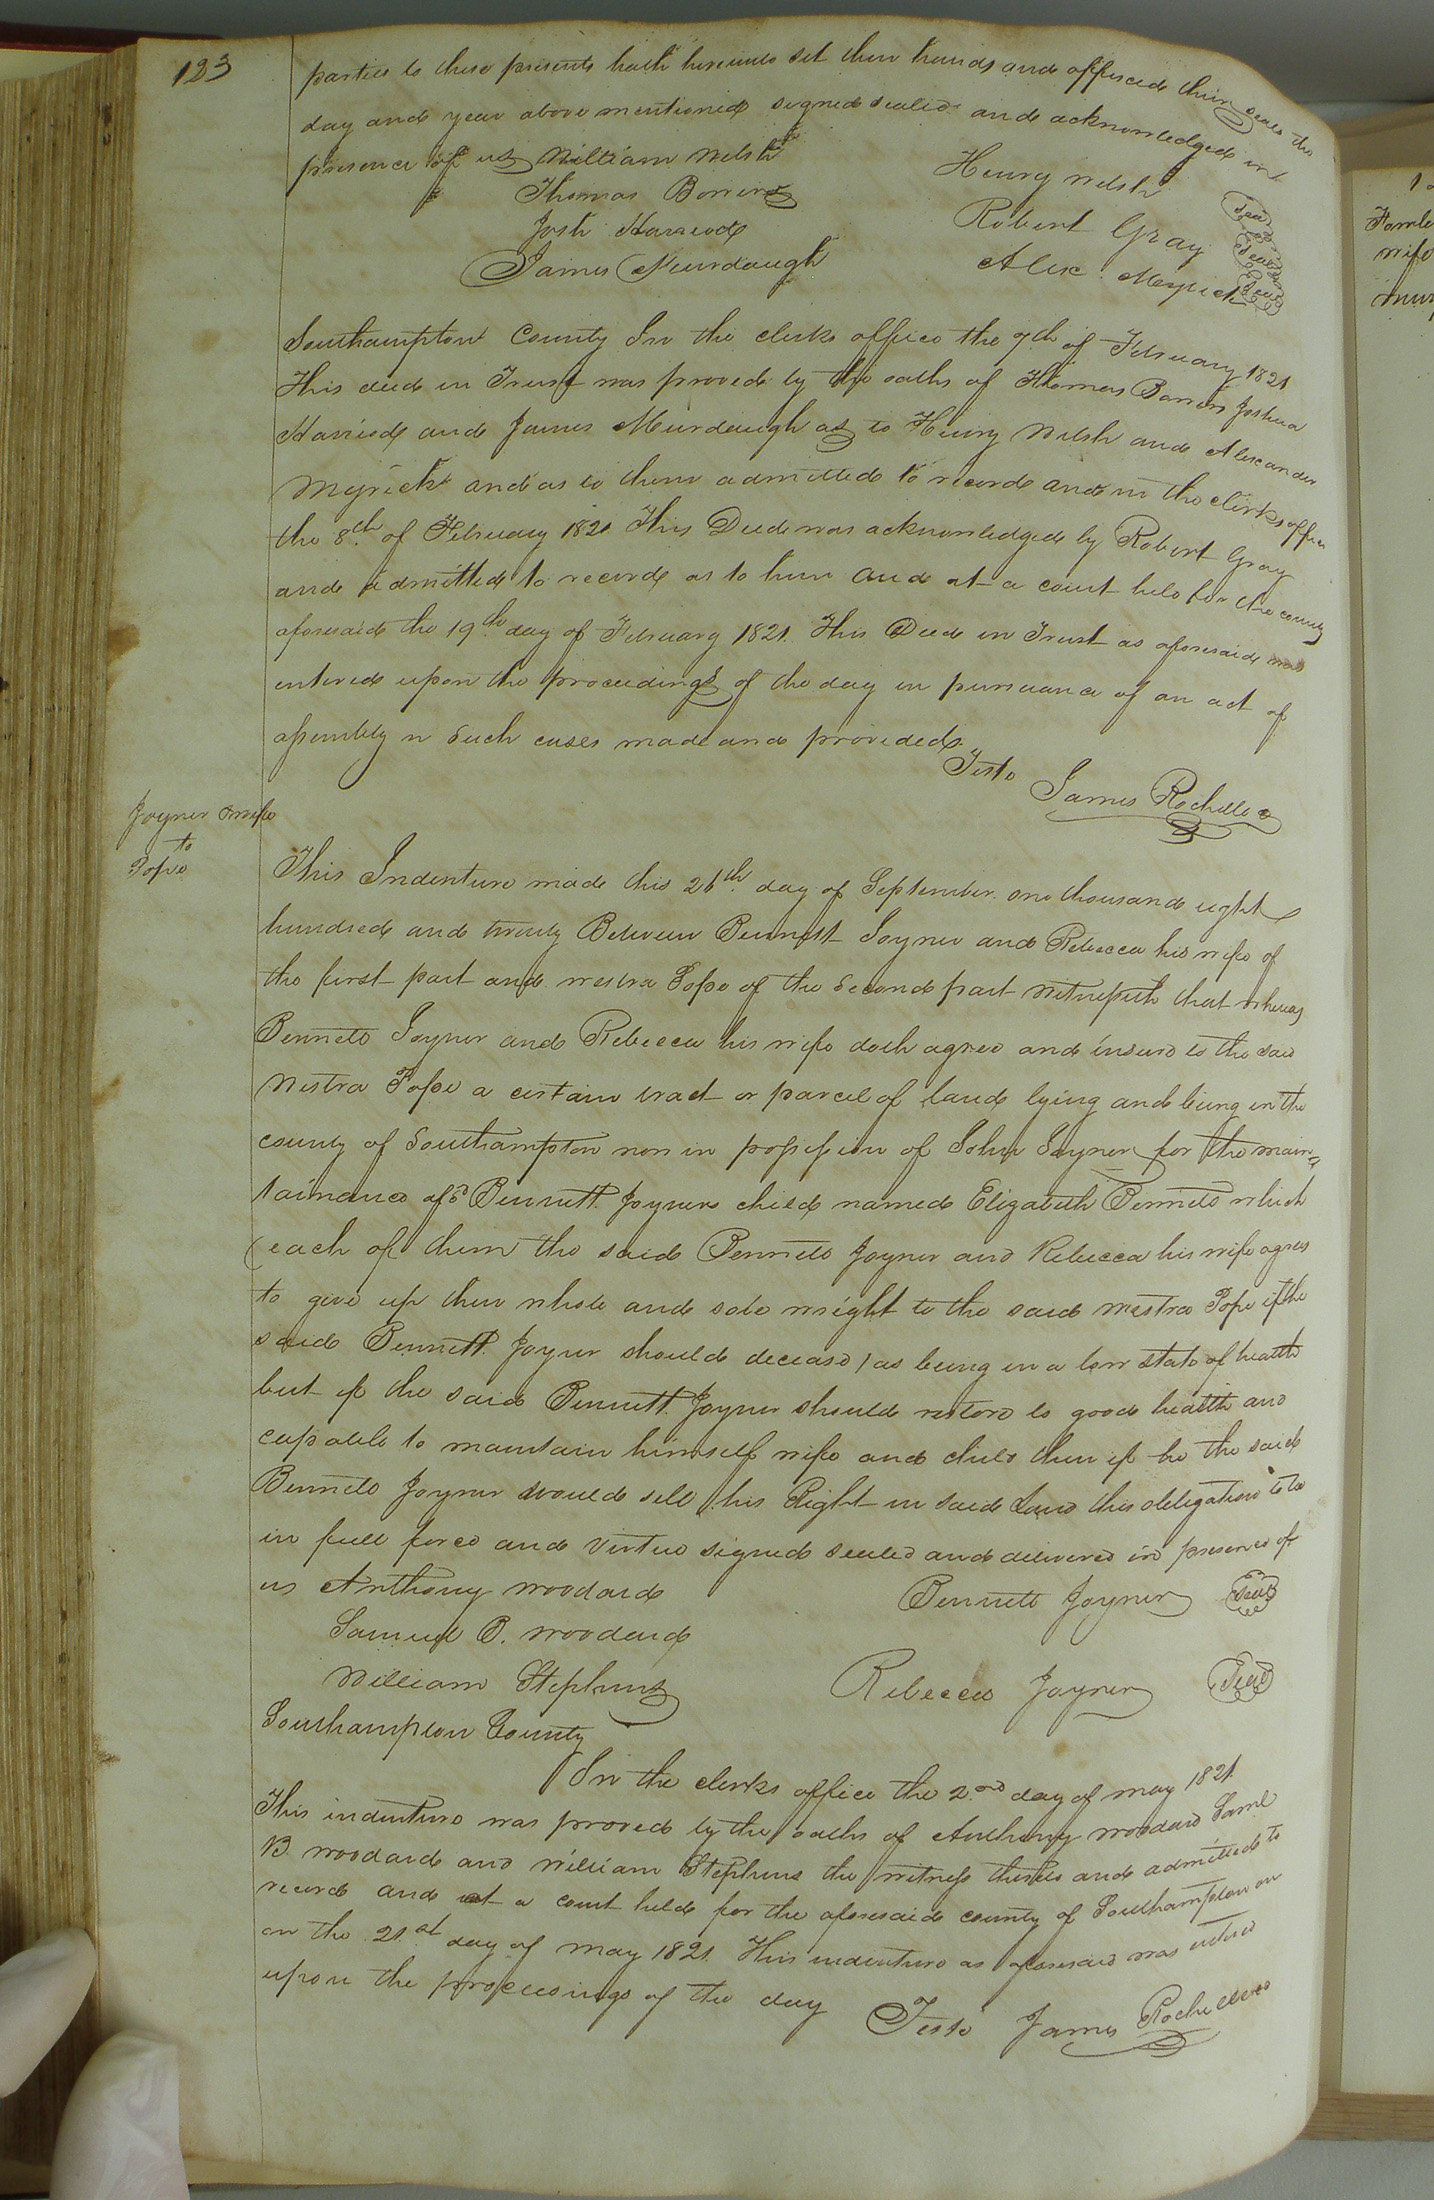 123
parties to these presents hath hereunto set their hands and affixed their seals the
day and year above mentioned signed sealed and acknowledged in
presence of us William Welsh
Henry Welsh Seal
Thomas Barrers
Robert Gray Seal
Josh Harriode
Alex. Meyrick Seal
James Murdaugh
Southampton County In the clerks office the 7th of February 1821
This deed in Trust was proved by the oaths of Thomas Joshua
Harriode and James Murdaugh as to Henry Welsh and Alexander
Myrick and as to them admitted to record and in the clerks office
the 8th of February 1821 This Deed was acknowledged by Robert Gray
and admitted to record as to him and at a court held for the county
aforesaid the 19th day of February 1821. This Deed in Trust as aforesaid was
entered upon the proceedings of the day in pursuance of an act of
assembly n such cases made and provided
Teste
James Rochelle
Joyner & wife
to
Pope
This Indenture made this 26th day of September one thousand eight
hundred and twenty Between Bennett Joyner and Rebecca his wife of
the first part and westra Pope of the second part witnesseth that whereas
Bennett Joyner and Rebecca his wife doth agree and insure to the said
Westra Pope a certain tract or parcel of land lying and being in the
county of Southampton now in possession of John Joyner for the main
tainance of sd Bennett Joyners child named Elizabeth Bennett which
(each of them the said Bennett Joyner and Rebecca his wife agrees
to give up their whole and sole wright to the said westra Pope if the
said Bennett Joyner should decease) as being in a low state of health
but if the said Bennett Joyner should restore to good health and
capable to maintain himself wife and child then if he the said
Bennett Joyner would sell his Right in said Land this obligation to be
in full force and virtue signed sealed and delivered in presence of
us Anthony Woodard
Bennett Joyner Seal
Samuel B. Woodard
William Stephens
Rebecca Joyner Seal
Southampton County
In the clerks office the 2nd day of may 1821
This indenture was proved by the oaths of Anthony Woodard Saml
B. Woodard and William Stephens the witness thereto and admitted to
record and at a court held for the aforesaid county of Southampton on
on the 21st day of may 1821. This indenture as aforesaid was entered
upon the proceedings of the day
Teste James Rochelle